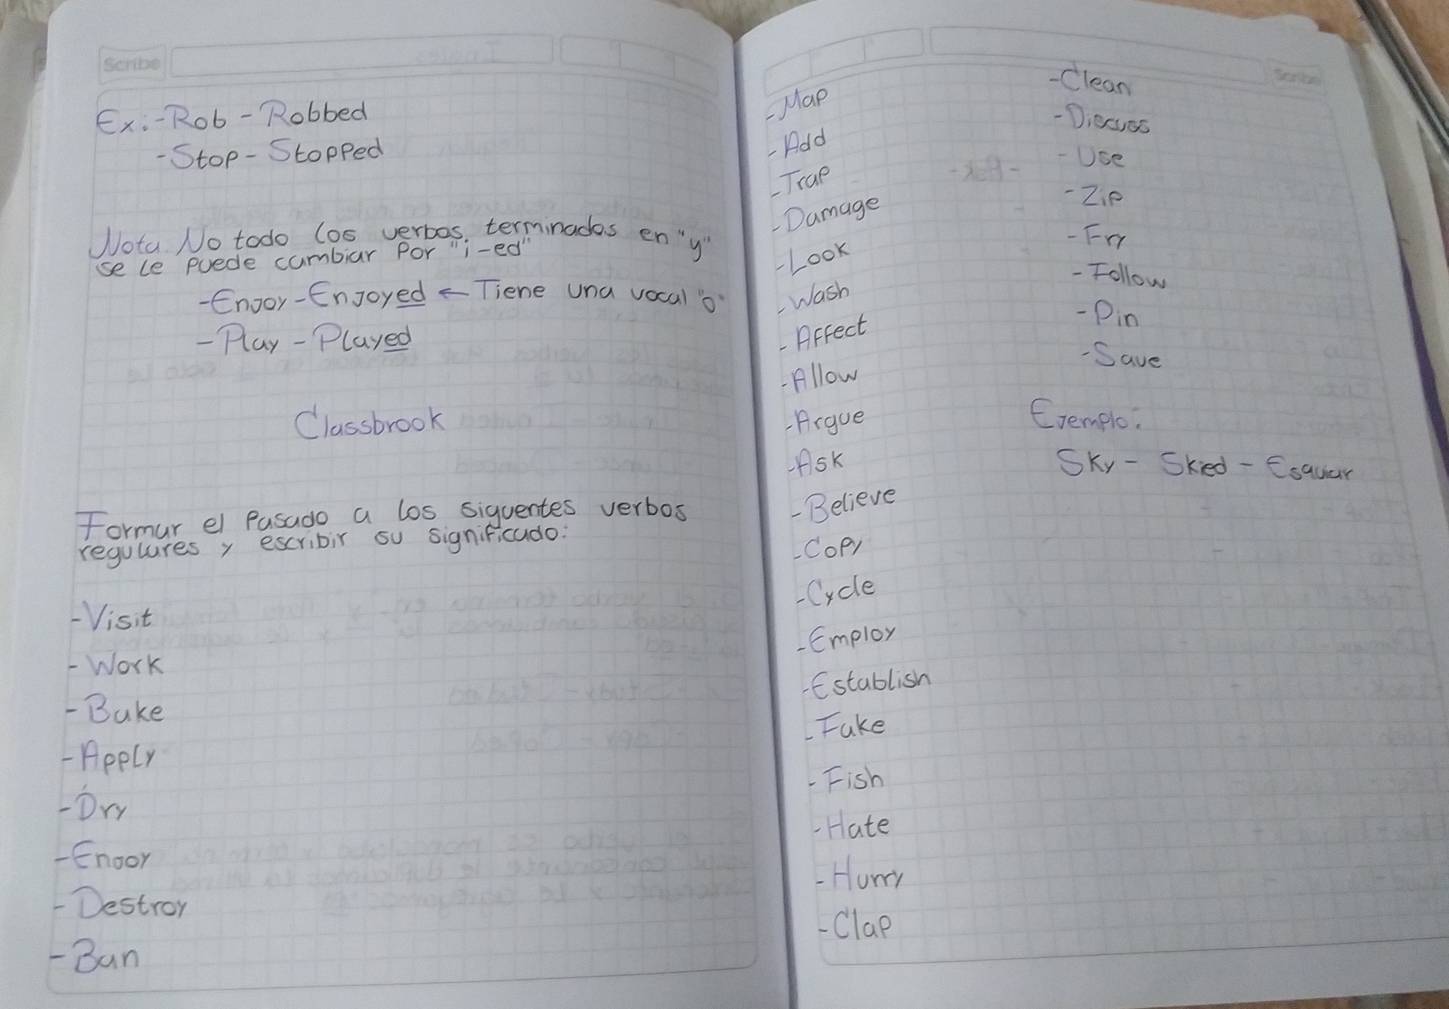 Scribe
Ex: -Rob - Robbed
-Stop - Stopped
Nota No todo los verbos terminados en "y"
se le puede cambiar Por "i-ed"
-Enjoy - Enjoyed ← Tiene una vocal "o"
-Play - Played
Classbrook
Formar el Pasado a los siguentes verbos
regulares y escribir su significado:
-Visit
-Work
-Bake
-Apply
-Dry
-Enooy
-Destroy
-Ban
Scribe
-Map
-Add
-Trap
-Damage
-Look
-Wash
-Affect
-Allow
-Argue
-Ask
-Believe
-Copy
-Cycle
-Employ
-Establish
-Fake
-Fish
-Hate
-Hurry
-Clap
-Clean
-Discuss
-Use
-Zip
-Fry
-Follow
-Pin
-Save
Ejemplo:
Sky - Skied - Esquiar